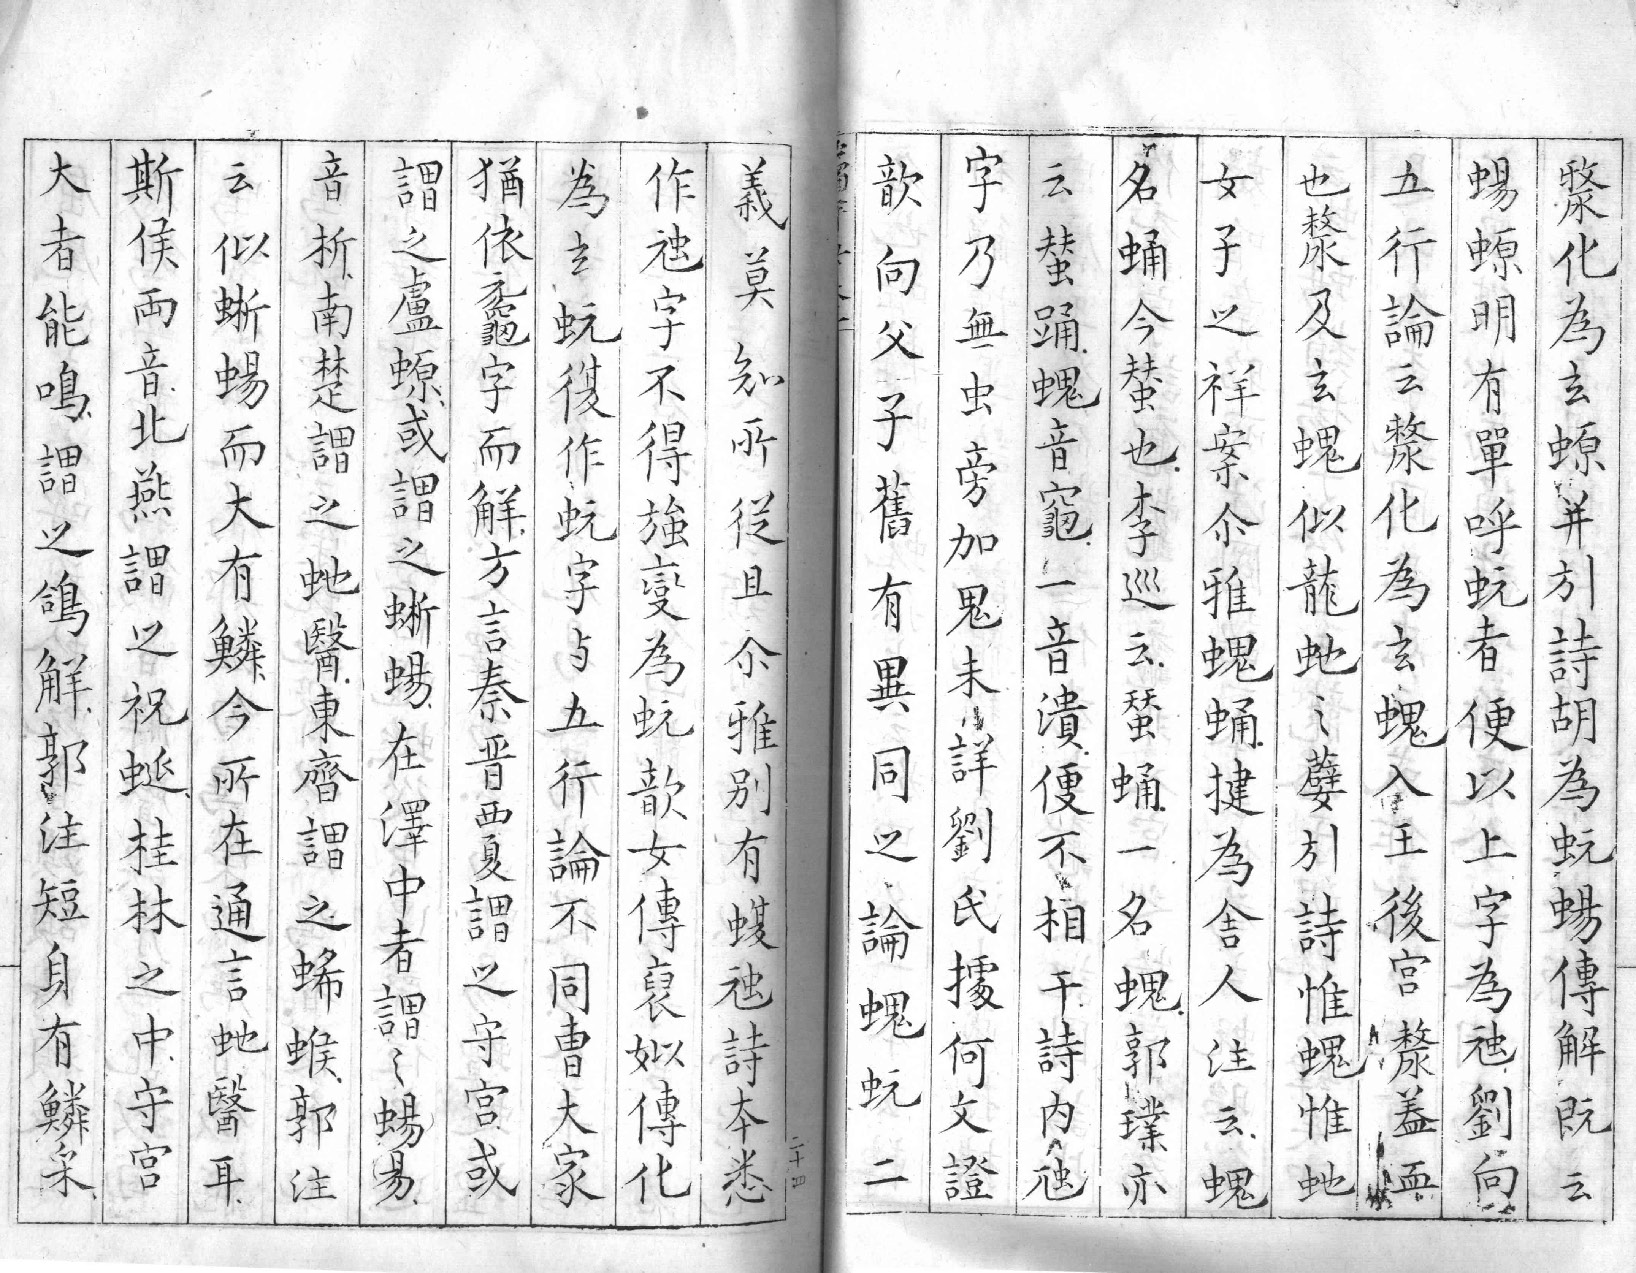 漦化為玄螈并引詩胡為蚖蜴傳解既云
蜴螈明有單呼蚖者便以上字為虺劉向
五行論云漦化為玄螝入王後宮漦蓋血
也漦及玄螝似龍虵之孽引詩惟螝惟虵
女子之祥案尒雅螝蛹揵為舍人注云螝
名蛹今蛬也李巡云蛬蛹一名螝郭璞亦
云蛬踊螝音龜一音潰便不相干詩內虺
字乃無虫旁加鬼未詳劉氏據何文證
歆向父子舊有異同之論螝蚖二
義莫知所從且尒雅別有蝮虺詩本悉
作虺字不得強變為蚖歆女傳裒姒傳化
為玄蚖復作蚖字与五行論不同曹大家
猶依元龜字而解方言秦晉西夏謂之守宮或
謂之盧螈或謂之蜥蜴在澤中者謂之蜴易
音析南楚謂之虵醫東齊謂之蠑蚖郭注
云似蜥蜴而大有鱗今所在通言虵醫耳
斯侯兩音北燕謂之祝蜓桂林之中守宮
大者能鳴謂之鴿解郭注短身有鱗采
二十四